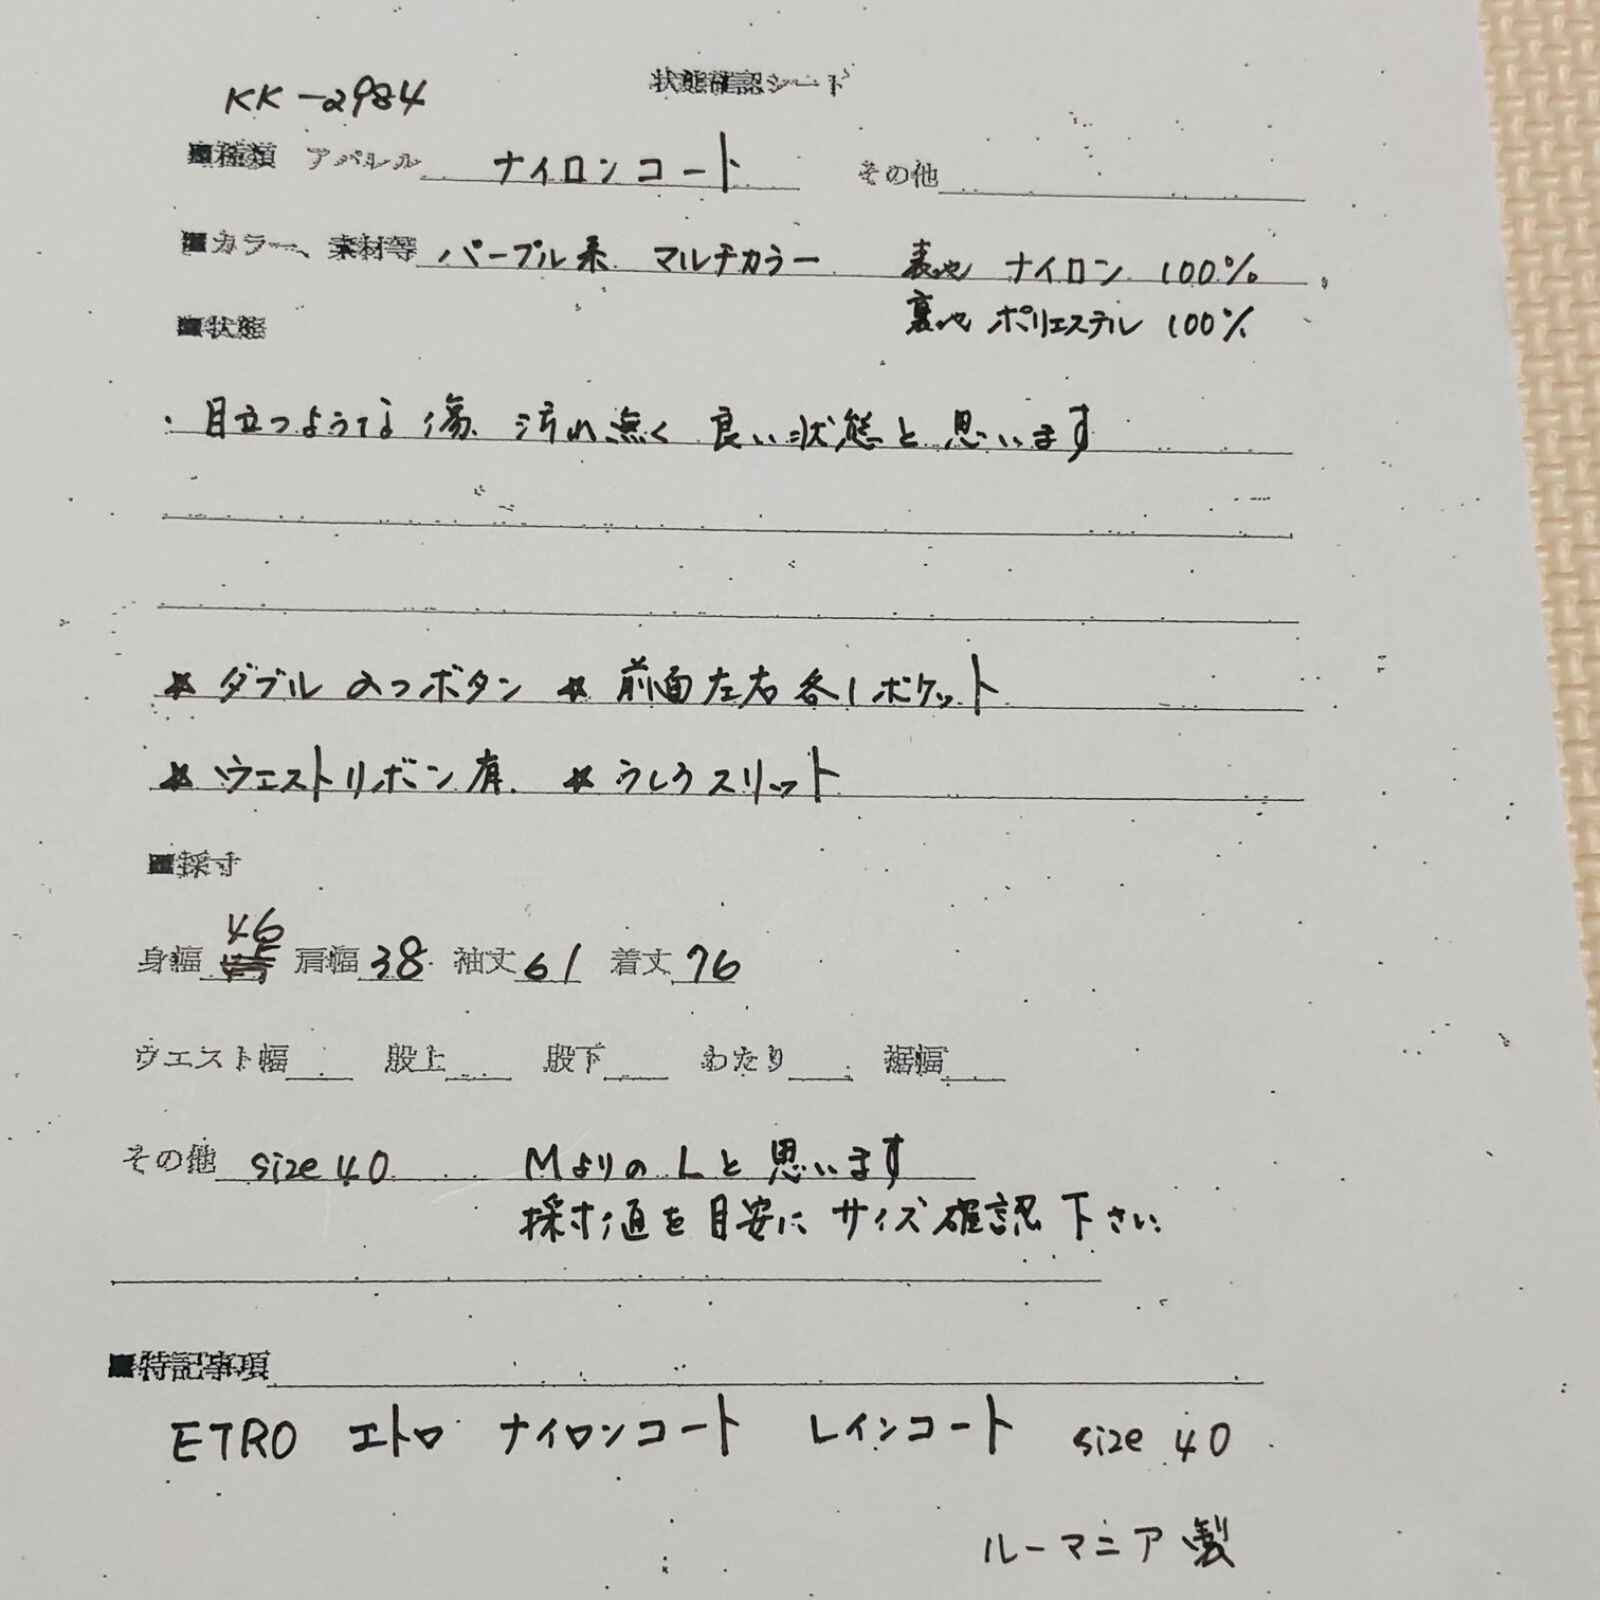 状態確認シート
KK-2984
■種類 アパレル ナイロンコート その他
■カラー、素材等 パープル系 マルチカラー 表地 ナイロン 100%
裏地 ポリエステル 100%
■状態
・目立つような傷、汚れ無く 良い状態と思います
★ダブル 2つボタン ★前面左右各1ポケット
★ウエストリボン有 ★うしろスリット
■採寸
46
身幅 肩幅 38 袖丈 61 着丈 76
ウエスト幅 股上 股下 わたり 裾幅
その他 size 40 MよりのLと思います
採寸値を目安にサイズ確認下さい
■特記事項
ETRO エトロ ナイロンコート レインコート size 40
ルーマニア製